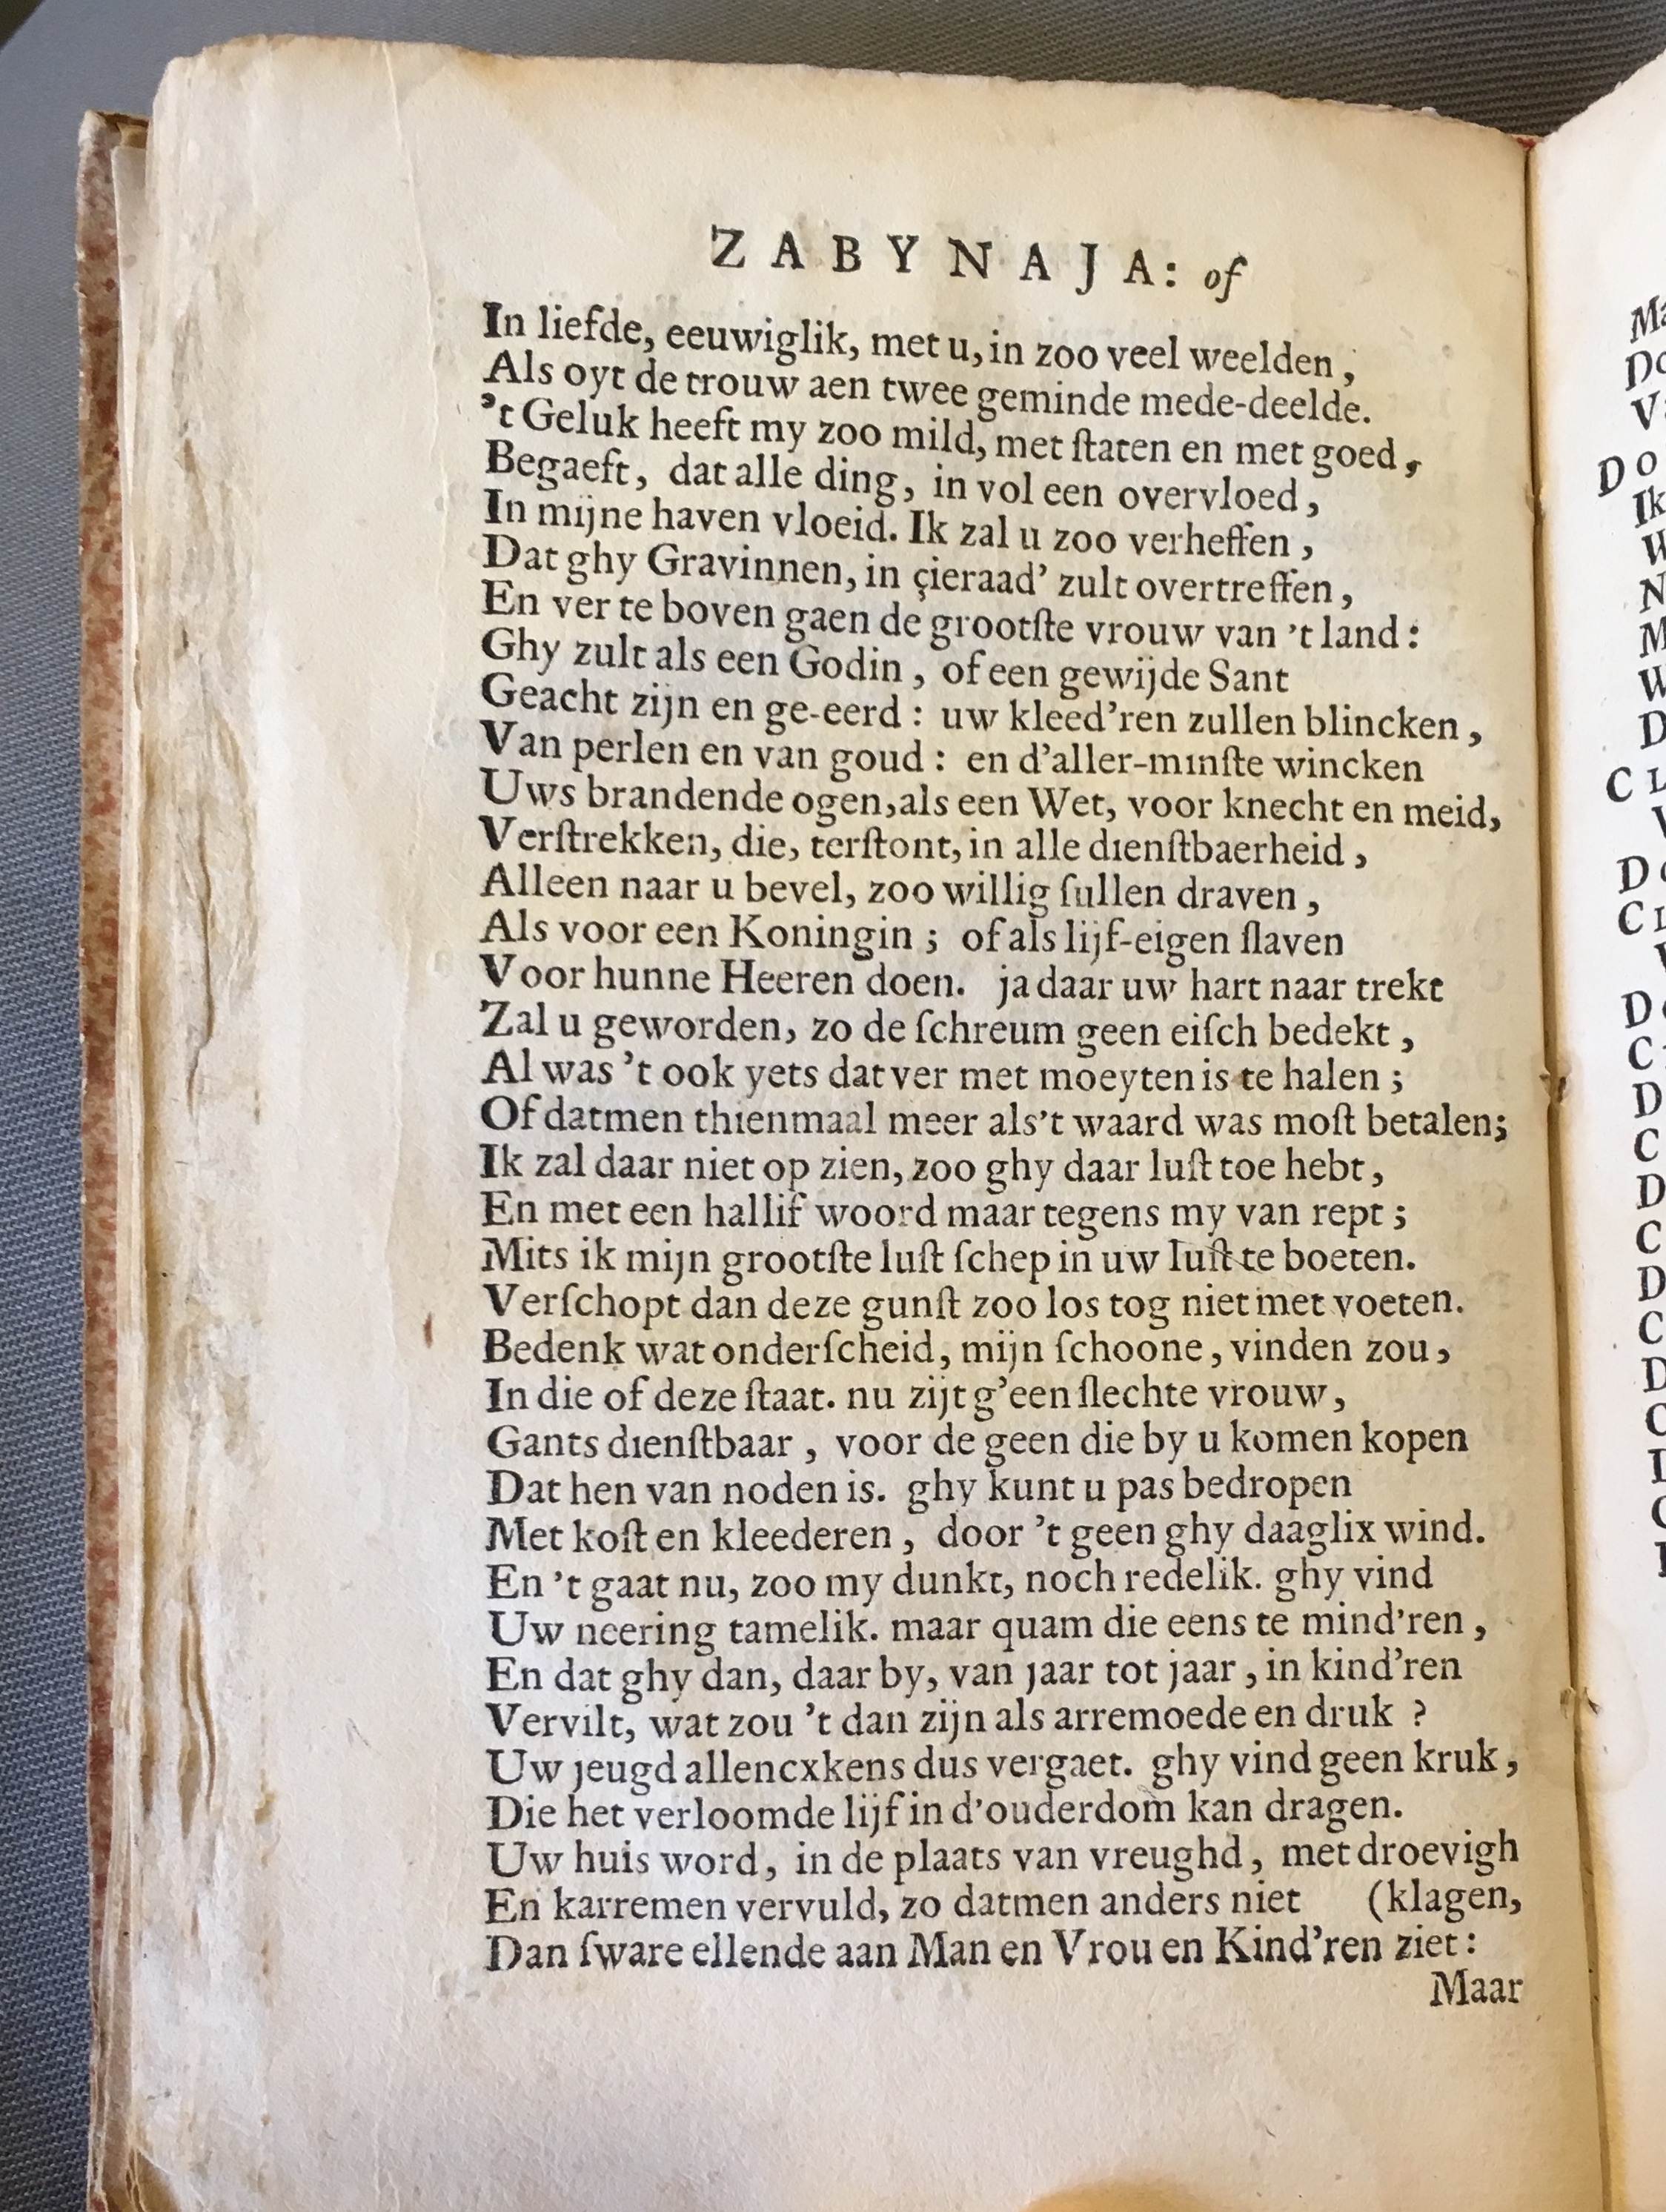 ZABYNAJA: of
In liefde, eeuwiglik, met u, in zoo veel weelden,
Als oyt de trouw aen twee geminde mede-deelde.
't Geluk heeft my zoo mild, met ſtaten en met goed,
Begaeft, dat alle ding, in vol een overvloed,
In mijne haven vloeid. Ik zal u zoo verheffen,
Dat ghy Gravinnen, in çieraad' zult overtreffen,
En ver te boven gaen de grootſte vrouw van 't land:
Ghy zult als een Godin, of een gewijde Sant
Geacht zijn en ge-eerd: uw kleed'ren zullen blincken,
Van perlen en van goud: en d'aller-minſte wincken
Uws brandende ogen, als een Wet, voor knecht en meid,
Verſtrekken, die, terſtont, in alle dienſtbaerheid,
Alleen naar u bevel, zoo willig ſullen draven,
Als voor een Koningin; of als lijf-eigen ſlaven
Voor hunne Heeren doen. ja daar uw hart naar trekt
Zal u geworden, zo de ſchreum geen eiſch bedekt,
Al was 't ook yets dat ver met moeyten is te halen;
Of datmen thienmaal meer als 't waard was moſt betalen;
Ik zal daar niet op zien, zoo ghy daar luſt toe hebt,
En met een hallif woord maar tegens my van rept;
Mits ik mijn grootſte luſt ſchep in uw luſt te boeten.
Verſchopt dan deze gunſt zoo los tog niet met voeten.
Bedenk wat onderſcheid, mijn ſchoone, vinden zou,
In die of deze ſtaat. nu zijt g'een ſlechte vrouw,
Gants dienſtbaar, voor de geen die by u komen kopen
Dat hen van noden is. ghy kunt u pas bedropen
Met koſt en kleederen, door 't geen ghy daaglix wind.
En 't gaat nu, zoo my dunkt, noch redelik. ghy vind
Uw neering tamelik. maar quam die eens te mind'ren,
En dat ghy dan, daar by, van jaar tot jaar, in kind'ren
Vervilt, wat zou 't dan zijn als arremoede en druk?
Uw jeugd allencxkens dus vergaet. ghy vind geen kruk,
Die het verloomde lijf in d'ouderdom kan dragen.
Uw huis word, in de plaats van vreughd, met droevigh
En karremen vervuld, zo datmen anders niet (klagen,
Dan ſware ellende aan Man en Vrou en Kind'ren ziet:
Maar